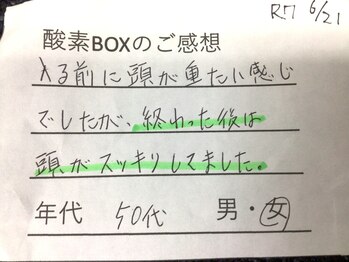 R7 6/21
酸素BOXのご感想
入る前に頭が重たい感じ
でしたが、終わった後は
頭がスッキリしてました。
年代 50代 男・女